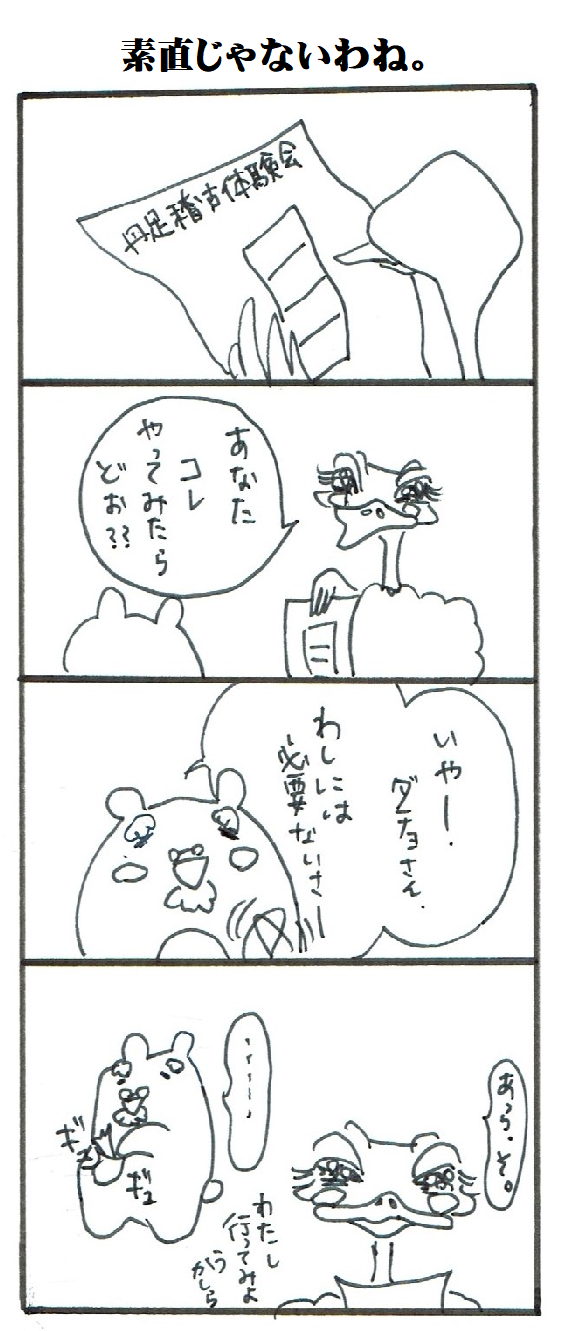 素直じゃないわね。
丹足稽古体験会
あなた
コレ
やってみたら
どお??
いやー.
ダチョさん.
わしには
必要ないさー
あっら、そ。
・・・・・・
ギュ
ギュ
わたし
行ってみよ
うかしら